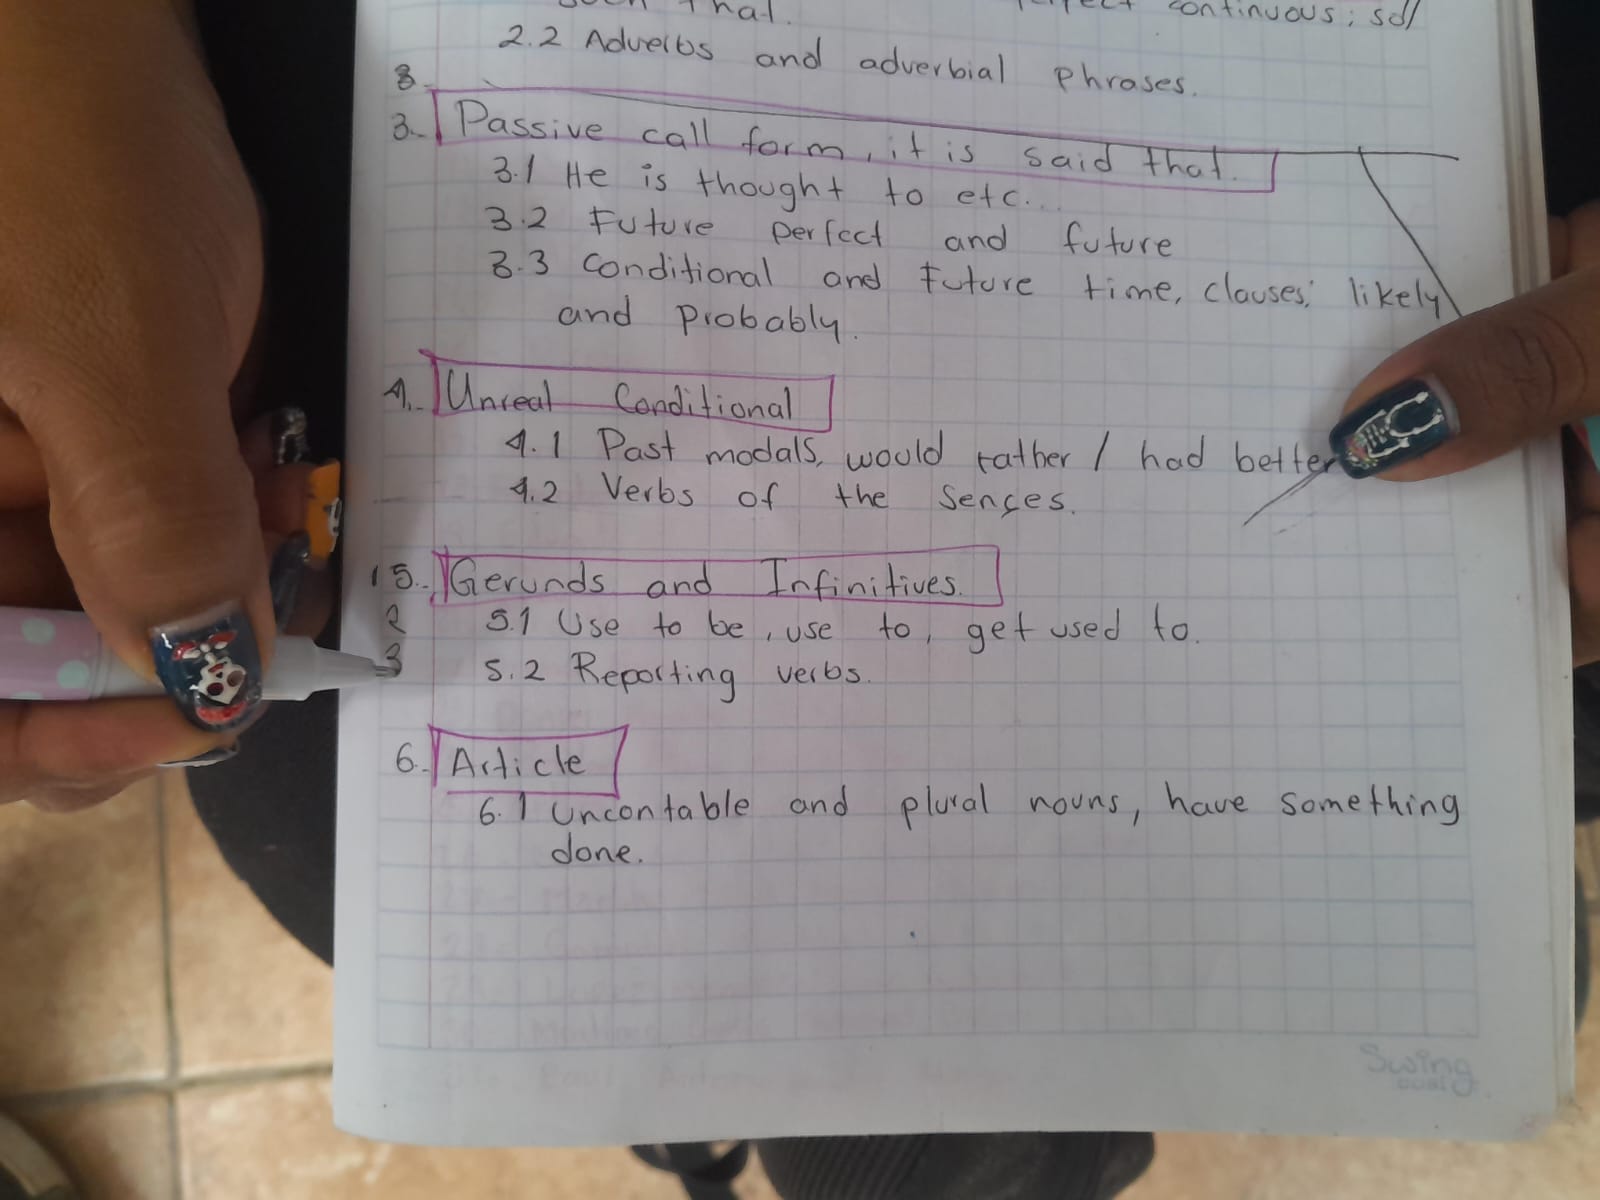 that.
continuous; so/
2.2 Adverbs and adverbial phrases.
3.
3. Passive call form, it is said that.
3.1 He is thought to etc...
3.2 Future perfect and future
3.3 Conditional and future time, clauses; likely
and probably.
4. Unreal Conditional
4.1 Past modals, would rather / had better
4.2 Verbs of the senses.
1 5. Gerunds and Infinitives.
2 5.1 Use to be, use to, get used to.
3 5.2 Reporting verbs.
6. Article
6.1 Uncontable and plural nouns, have something
done.
Swing